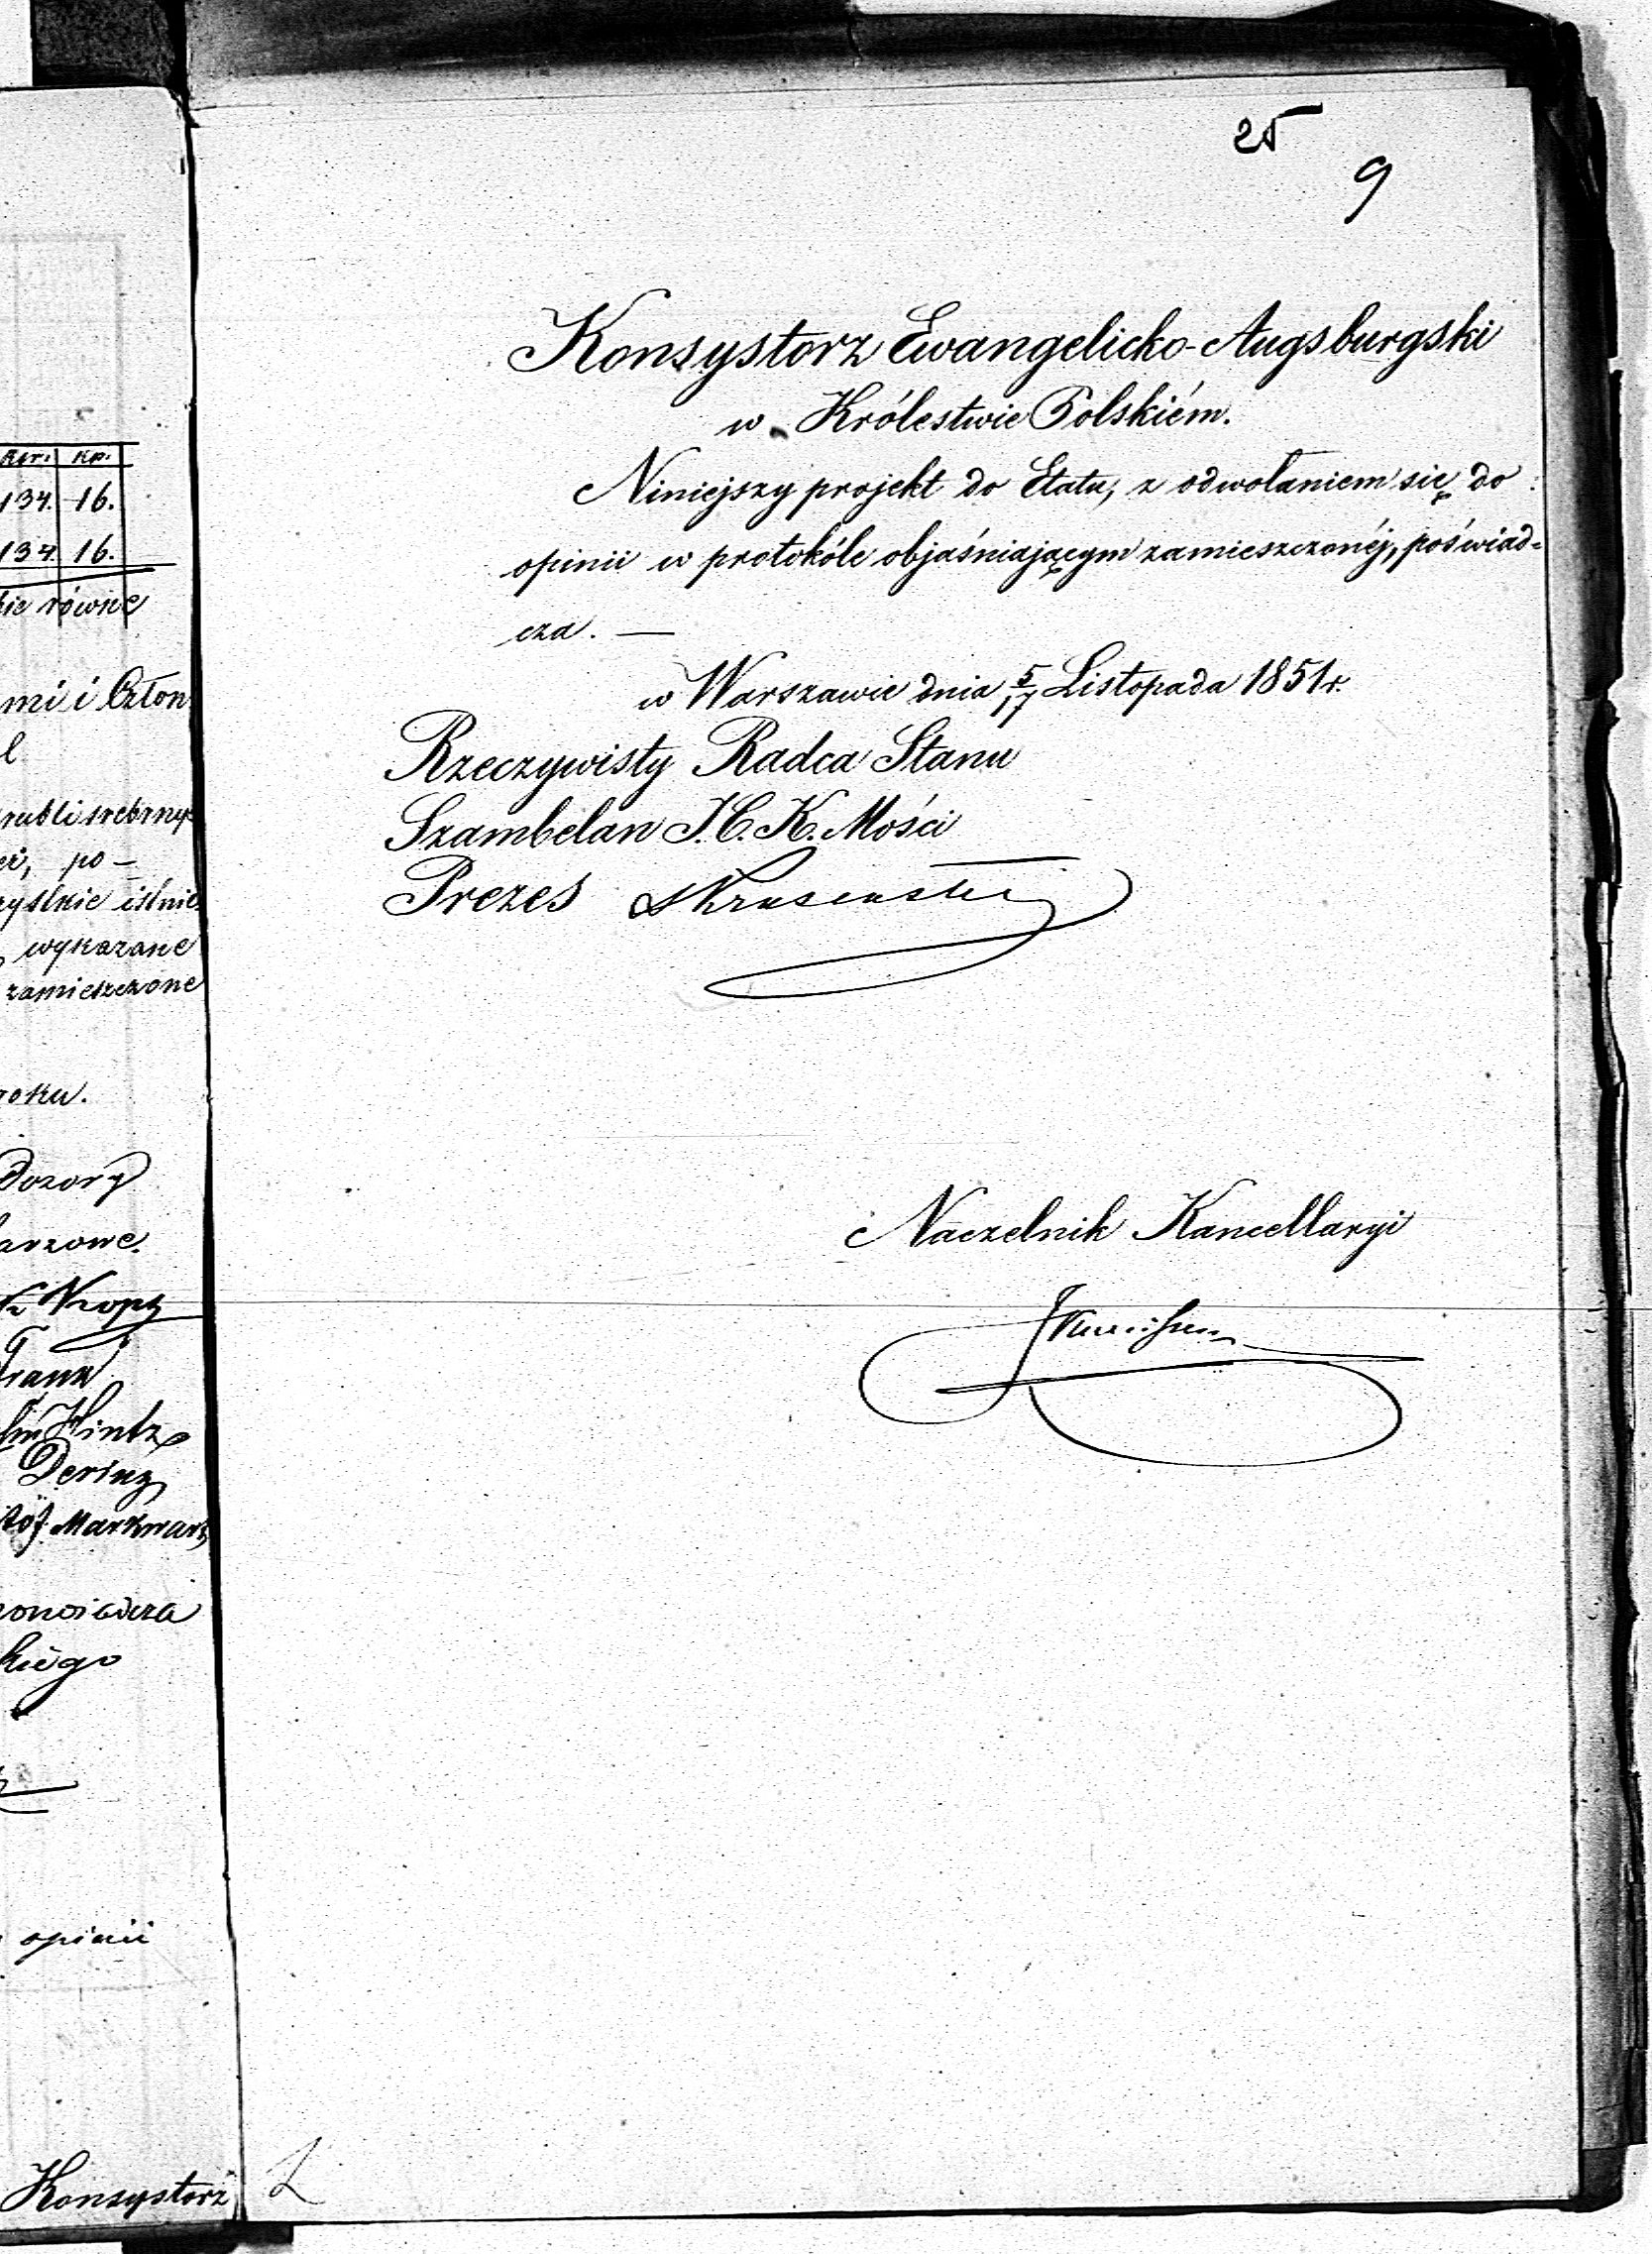 Rsr. kp.
134. 16.
134. 16.
równe
mi i Człon
rubli srebrny
po-
istnie
wykazane
zamieszczone
roku.
Dozory
Hintz
opinii
Konsystorz
25
9
Konsystorz Ewangelicko-Augsburgski
w Królestwie Polskiém.
Niniejszy projekt do Etatu, z odwołaniem się do
opinii w protokóle objaśniającym zamieszczonéj, poświad=
cza. —
w Warszawie dnia 5/17 Listopada 1851 r.
Rzeczywisty Radca Stanu
Szambelan J. C. K. Mości
Prezes
Naczelnik Kancellaryi